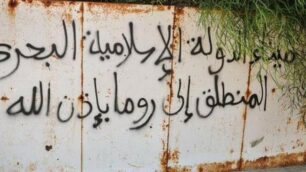 ميناء الدولة الإسلامية البحري
المنطلق إلى روما بإذن الله